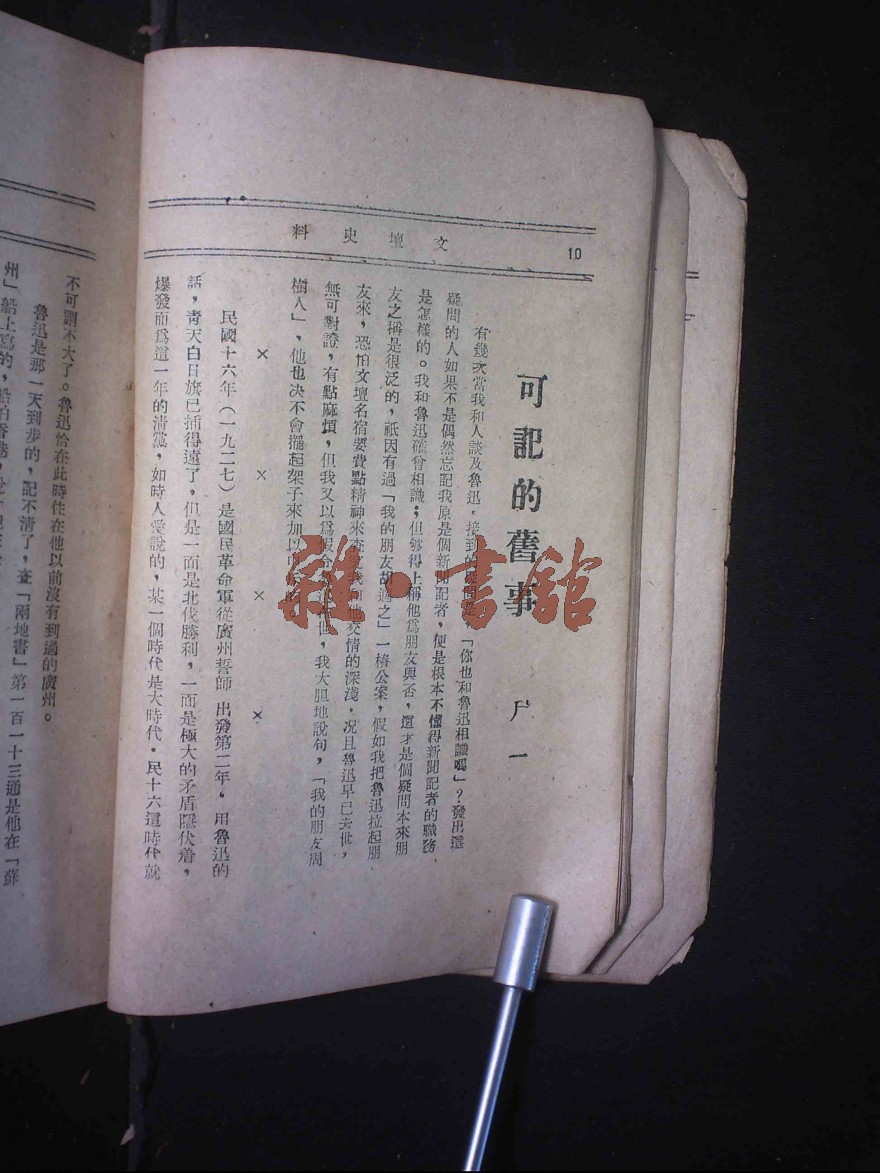 10
文壇史料
可記的舊事
尸一
有幾次當我和人談及魯迅，接到的「你也和魯迅相識嗎」？發出這
疑問的人如果不是偶然忘記我原是個新聞記者，便是根本不懂得新聞記者的職務，
是怎樣的。我和魯迅確曾相識；但够得上稱他爲朋友與否，這才是個疑問本來朋
友之稱是很泛的，祇因有過「我的朋友胡適之」一樁公案，假如我把魯迅拉起朋
友來，恐怕文壇名宿要費點精神來查我和他交情的深淺，况且魯迅早已去世，
無可對證，有點麻煩，但我又以爲假令世，我大胆地說句，「我的朋友周
樹人」，他也决不會擺起架子來加以
× × × ×
民國十六年（一九二七）是國民革命軍從廣州誓師出發第二年，用魯迅的
話，青天白日旗已插得遠了，但是一面是北伐勝利，一面是極大的矛盾隱伏着，
爆發而爲這一年的清黨，如時人愛說的，某一個時代是大時代。民十六這時代就
不可謂不大了。魯迅恰在此時住在他以前沒有到過的廣州。
魯迅是那一天到步的，記不清了，查「兩地書」第一百一十三通是他在「蘇
州」船上寫的，船泊香港，
雜·書館